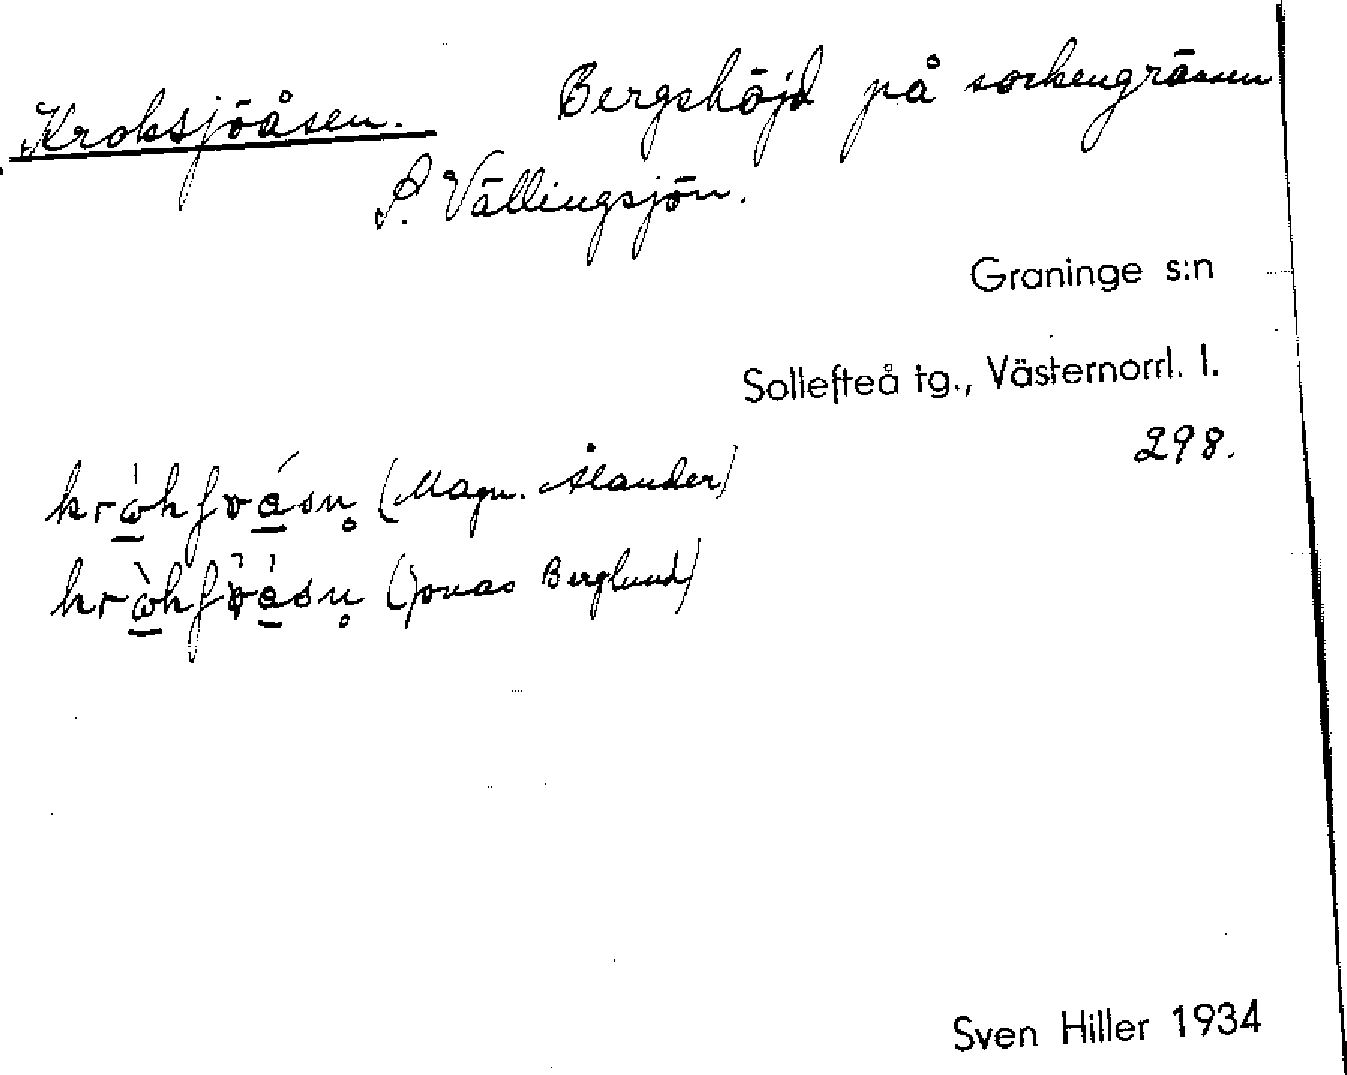 Kroksjöåsen. Bergshöjd på sockengränsen
S. Vällingsjön.
Graninge s:n
Sollefteå tg., Västernorrl. l.
298.
(Magn. Ålander)
(Jonas Berglund)
Sven Hiller 1934